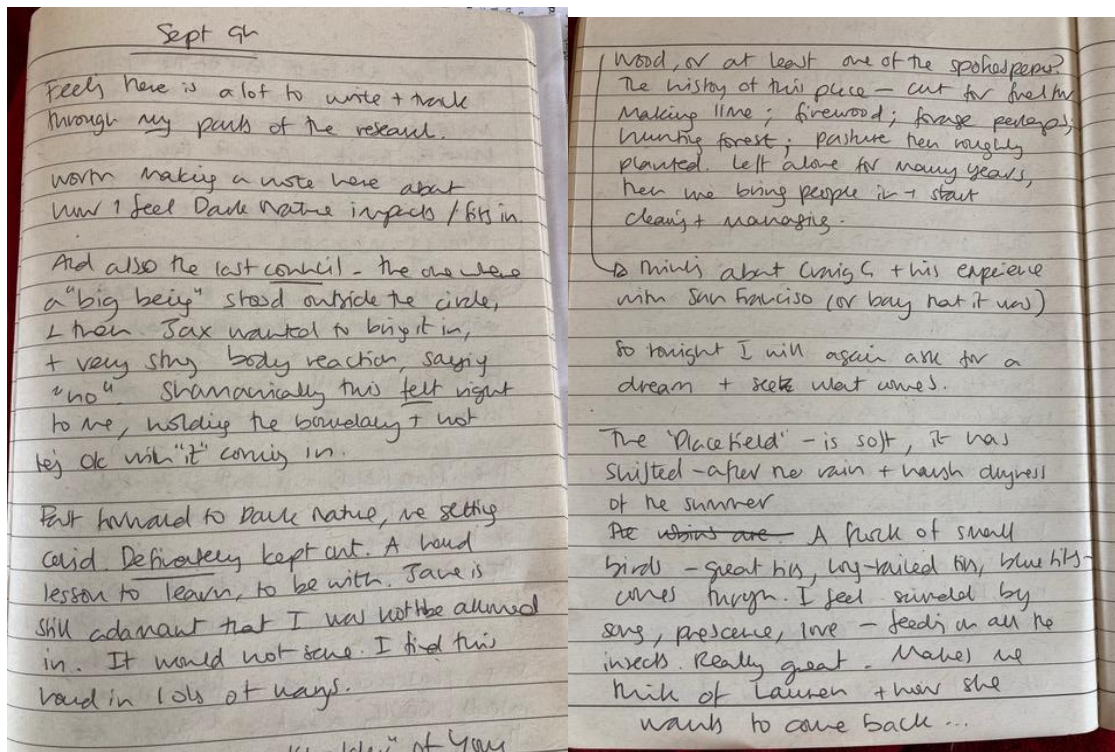 Sept 9h
Feels here is a lot to write + track
through my parts of the research.
worth making a note here about
how I feel Dark Nature impacts / fits in.
And also the last council - the one where
a "big being" stood outside the circle,
+ then Jax wanted to bring it in,
+ very strng body reaction, sayig
"no". Shamanically this felt right
to me, holding the boundary + not
beig Ok with "it" coming in.
Fast forward to Dark Nature, me setting
Definately kept out. A hard
lesson to learn, to be with. Jane is
still adamant that I was not be allowed
in. It would not serve. I find this
hard in lots of ways.
of You
Wood, or at least one of the spokespeeps?
The history of this place - cut for fuel for
making lime; firewood; forage perhaps;
hunting forest; pasture then roughly
planted. Left alone for many years,
then we bring people in + start
clearig + managing.
Thinks about Craig C + his experience
with San Francisco (or bay that it was)
So tonight I will again ask for a
dream + see what comes.
The 'Placefield' - is soft, it has
shifted - after the rain + harsh dryness
of the summer
A flock of small
birds - great tits, long-tailed tits, blue tits -
comes through. I feel surrounded by
song, prescence, love - feeding on all the
insects. Really great. Makes me
think of Lauren + how she
wants to come back ...